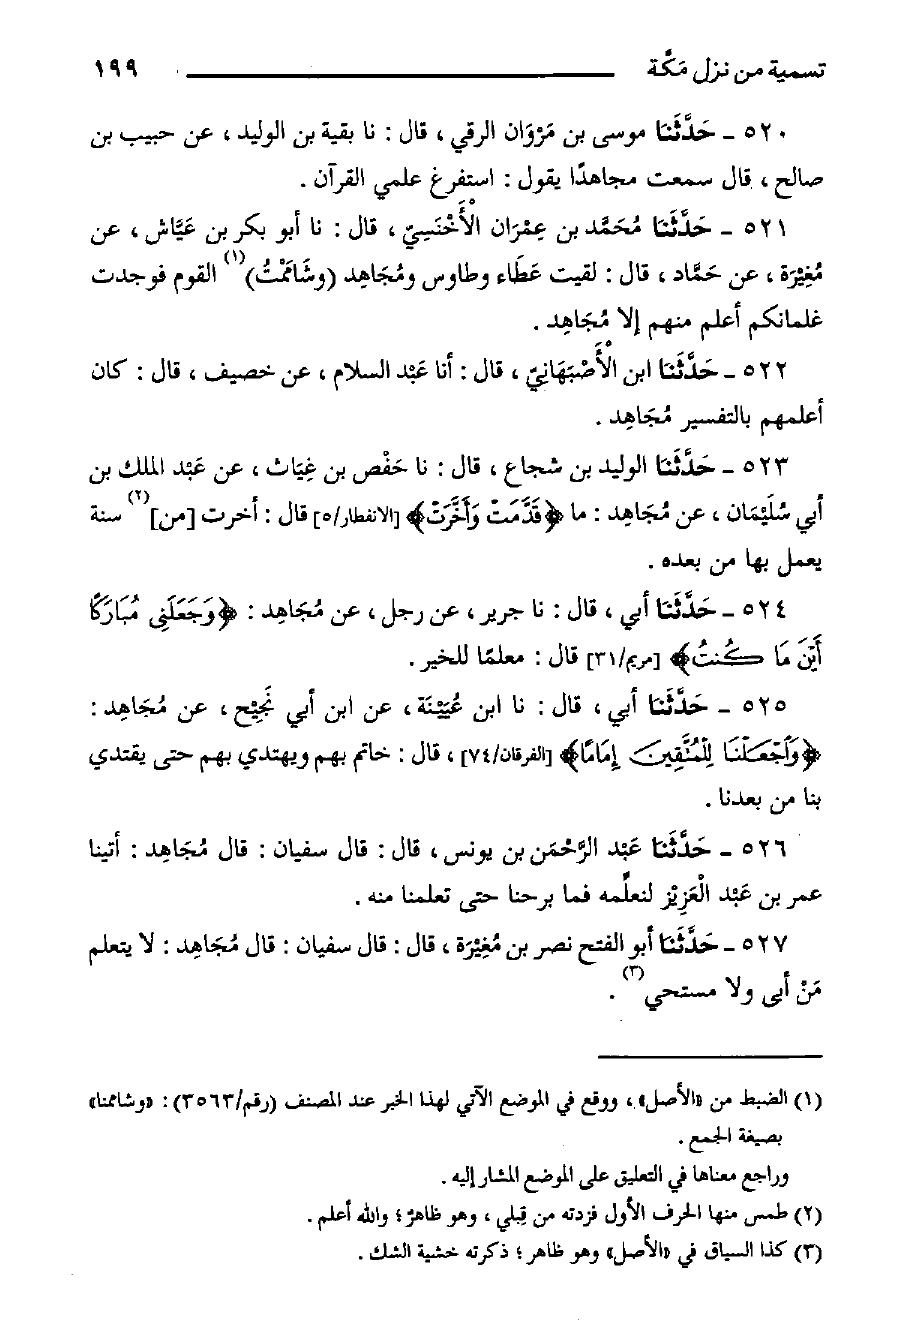 تسمية من نزل مَكَّة ١٩٩
٥٢٠ ـ حَدَّثَنَا موسى بن مَرْوَان الرقي ، قال : نا بقية بن الوليد ، عن حبيب بن
صالح ، قال سمعت مجاهدًا يقول : استفرغ علمي القرآن .
٥٢١ ـ حَدَّثَنَا مُحَمَّد بن عِمْرَان الأَخْنَسِيّ ، قال : نا أبو بكر بن عَيَّاش ، عن
مُغِيْرَة ، عن حَمَّاد ، قال : لقيت عَطَاء وطاوس ومُجَاهِد (وشَامَمْتُ)(١) القوم فوجدت
غلمانكم أعلم منهم إلا مُجَاهِد .
٥٢٢ ـ حَدَّثَنَا ابن الأَصْبَهَانِيّ ، قال : أنا عَبْد السلام ، عن خصيف ، قال : كان
أعلمهم بالتفسير مُجَاهِد .
٥٢٣ ـ حَدَّثَنَا الوليد بن شجاع ، قال : نا حَفْص بن غِيَاث ، عن عَبْد الملك بن
أبي سُلَيْمَان ، عن مُجَاهِد : ما ﴿قَدَّمَتْ وَأَخَّرَتْ﴾ [الانفطار/٥] قال : أخرت [من](٢) سنة
يعمل بها من بعده .
٥٢٤ ـ حَدَّثَنَا أبي ، قال : نا جرير ، عن رجل ، عن مُجَاهِد : ﴿وَجَعَلَنِي مُبَارَكًا
أَيْنَ مَا كُنتُ﴾ [مريم/٣١] قال : معلمًا للخير .
٥٢٥ ـ حَدَّثَنَا أبي ، قال : نا ابن عُيَيْنَة ، عن ابن أبي نَجِيْح ، عن مُجَاهِد :
﴿وَاجْعَلْنَا لِلْمُتَّقِينَ إِمَامًا﴾ [الفرقان/٧٤] ، قال : خاتم بهم ويهتدي بهم حتى يقتدي
بنا من بعدنا .
٥٢٦ ـ حَدَّثَنَا عَبْد الرَّحْمَن بن يونس ، قال : قال سفيان : قال مُجَاهِد : أتينا
عمر بن عَبْد الْعَزِيْز لنعلِّمه فما برحنا حتى تعلمنا منه .
٥٢٧ ـ حَدَّثَنَا أبو الفتح نصر بن مُغِيْرَة ، قال : قال سفيان : قال مُجَاهِد : لا يتعلم
مَنْ أبى ولا مستحي(٣) .
(١) الضبط من «الأصل» ، ووقع في الموضع الآتي لهذا الخبر عند المصنف (رقم/٣٥٦٣) : «وشاممنا»
بصيغة الجمع .
وراجع معناها في التعليق على الموضع المشار إليه .
(٢) طمس منها الحرف الأول فزدته من قِبلي ، وهو ظاهرٌ ؛ والله أعلم .
(٣) كذا السياق في «الأصل» وهو ظاهر ؛ ذكرته خشية الشك .